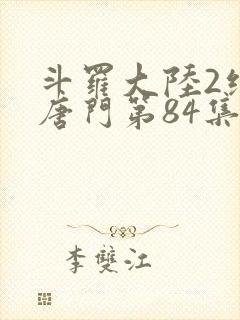 斗羅大陸2絕
唐門第84集
李雙江